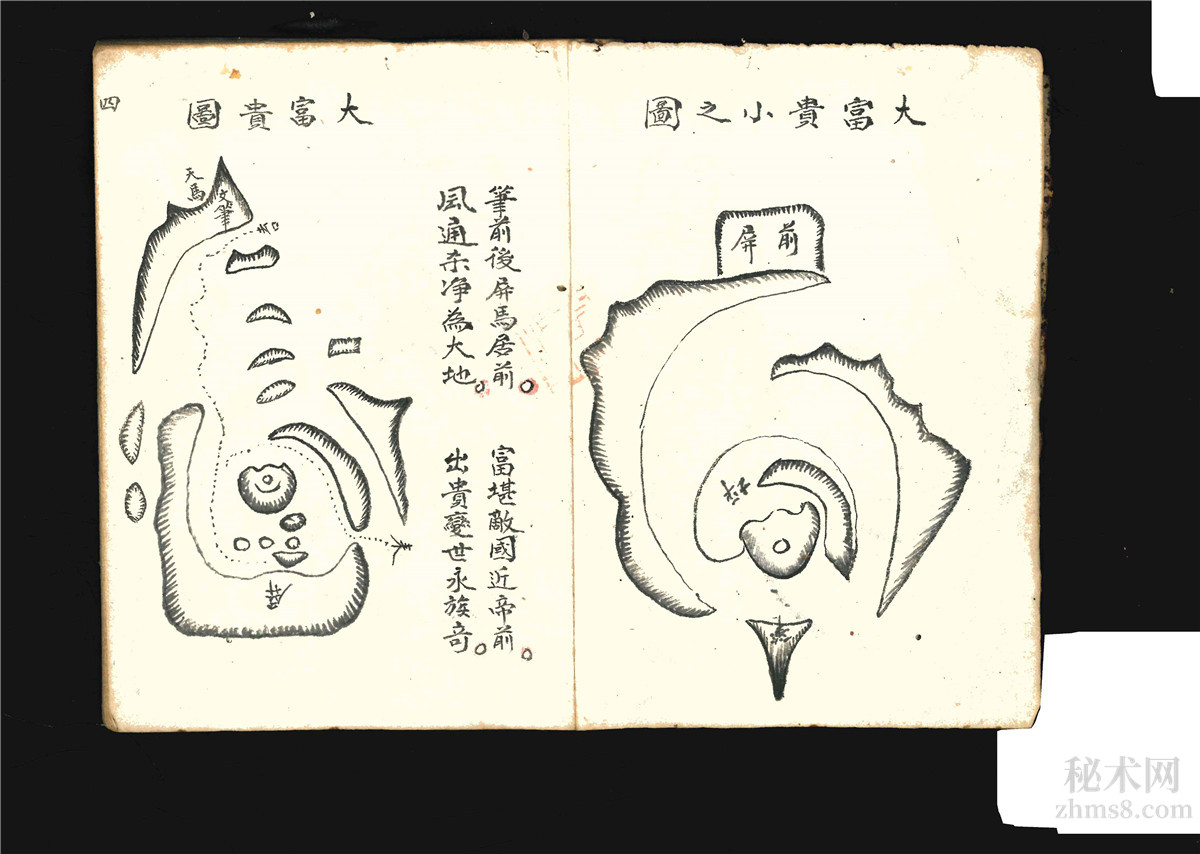 大富貴小之圖
前屏
大富貴圖
筆前後屏馬居前。
富堪敵國近帝前。
風通杀净為大地。
出貴變世永族奇。
天馬
文筆
屏
四
秘术网
zhms8.com